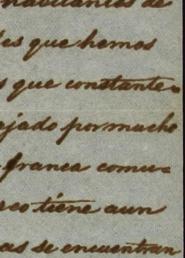 habitantes de
les que hemos
s que constante-
ejado por mucho
franca comu-
eco tiene aun
as se encuentran